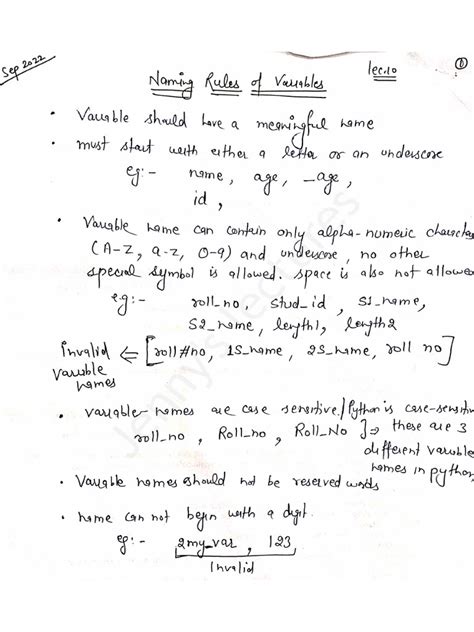 Sep 2022
lec.10
①
Naming Rules of Variables
• Variable should have a meaningful name
• must start with either a letter or an underscore
eg:- name, age, _age,
id,
• Variable name can contain only alpha-numeric character
(A-Z, a-z, 0-9) and underscore, no other
special symbol is allowed. space is also not allowed
e.g:- roll_no, stud_id, S1_name,
S2_name, length1, length2
Invalid variable names ⇐ [roll#no, 1S_name, 2S_name, roll no]
• variable names are case sensitive./Python is case-sensitive
roll_no, Roll_no, Roll_No ]⇒ these are 3
different variable
names in python
• Variable names should not be reserved words
• name can not begin with a digit.
eg:- 2my_var, 123
Invalid
Jenny's Lectures